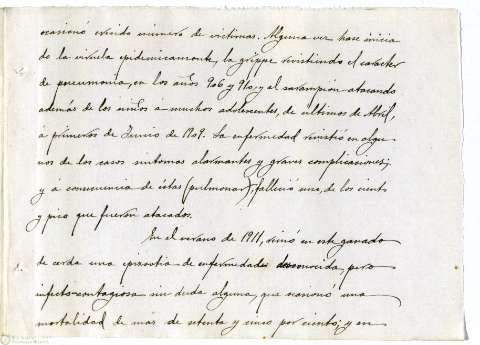 ocasionó crecido número de víctimas. Alguna vez hase inicia
do la viruela epidémicamente, la grippe revistiendo el carácter
de pneumonía, en los años 906 y 910, y el sarampión atacando
además de los niños a muchos adolescentes, de últimos de Abril,
a primeros de Junio de 1909. La enfermedad revistió en algu-
nos de los casos síntomas alarmantes y graves complicaciones;
y á consecuencia de éstas (pulmonar), falleció uno, de los ciento
y pico que fueron atacados.
En el verano de 1911, reinó en este ganado
de cerda una epizootia de enfermedad desconocida, pero
infecto-contagiosa sin duda alguna, que ocasionó una
mortalidad de más de setenta y cinco por ciento; y en